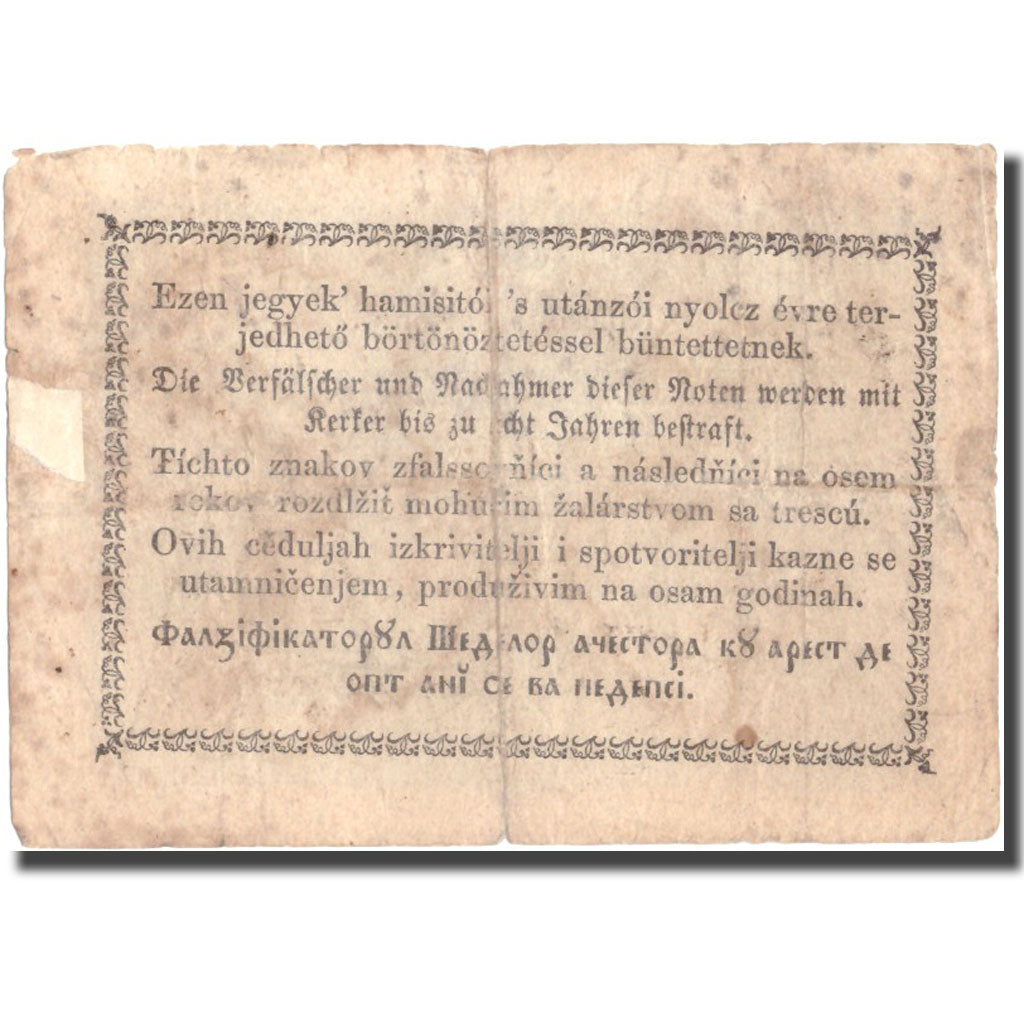 Ezen jegyek' hamisitói 's utánzói nyolcz évre ter-
jedhető börtönöztetéssel büntettetnek.
Die Verfälscher und Nachahmer dieser Noten werden mit
Kerker bis zu acht Jahren bestraft.
Tíchto znakov a následňíci na osem
rokov rozdlžiť mohúcim žalárstvom sa trescú.
Ovih cěduljah izkrivitelji i spotvoritelji kazne se
utamničenjem, produživim na osam godinah.
Фалꙁіфікаторꙋл Шеделор ачестора кꙋ арест де
опт анї се ва педепсі.